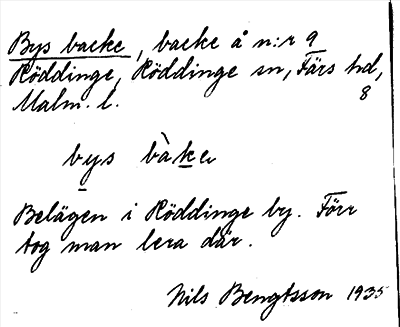 Bys backe, backe å n:r 9
Röddinge, Röddinge sn, Färs hd,
Malm. l. 8
bys bàkе
Belägen i Röddinge by. Förr
tog man lera där.
Nils Bengtsson 1935